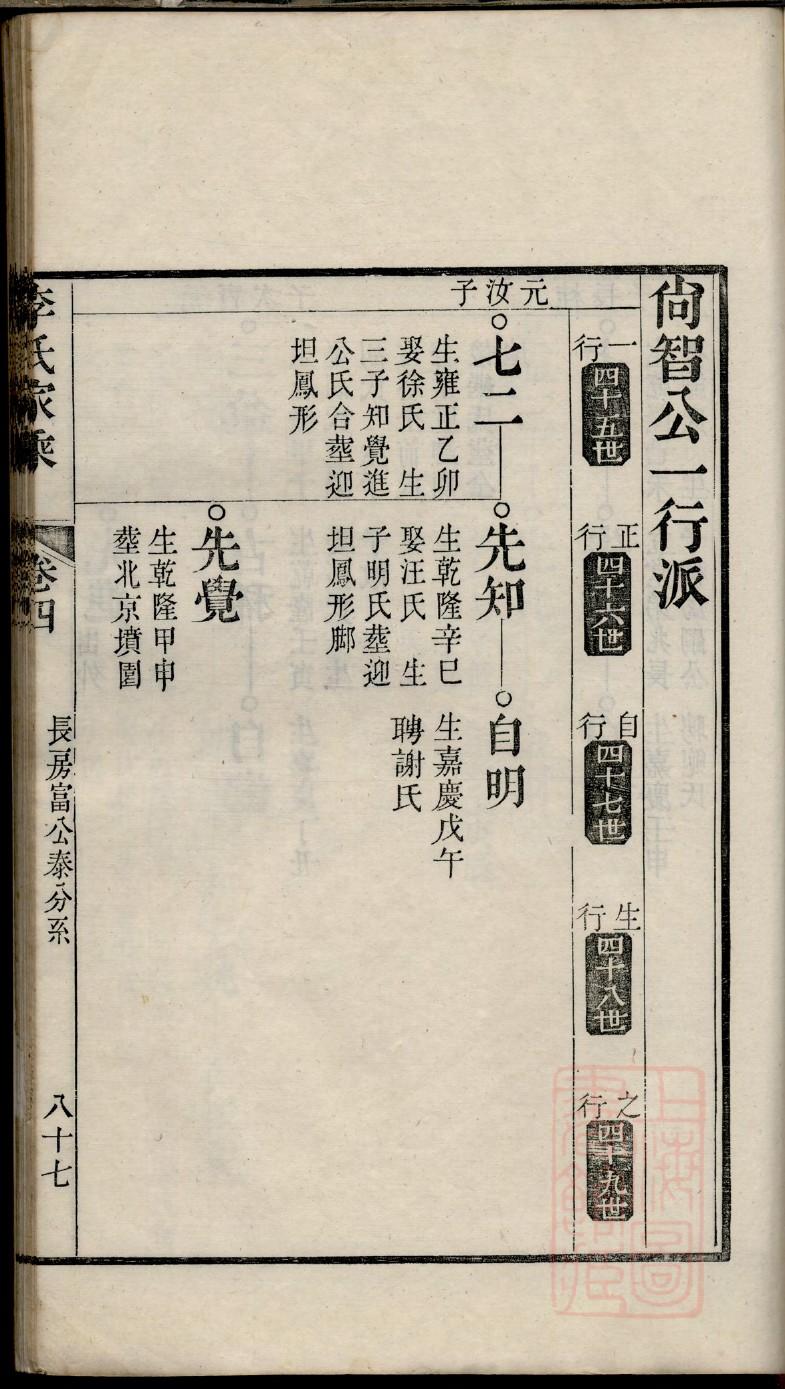 尙智公一行派
一行
四十五世
正行
四十六世
自行
四十七世
生行
四十八世
之行
四十九世
元汝子
七二
生雍正乙卯
娶徐氏 生
三子知覺進
公氏合塟迎
坦鳳形
先知
生乾隆辛巳
娶汪氏 生
子明氏塟迎
坦鳳形脚
自明
生嘉慶戊午
聘謝氏
先覺
生乾隆甲申
塟北京墳園
李氏家乘
卷四
長房富公泰分系
八十七